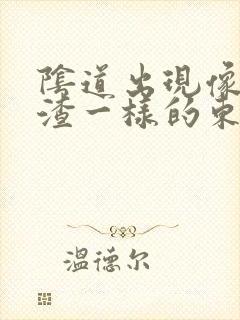 陰道出現像
渣一樣的東
溫德尔